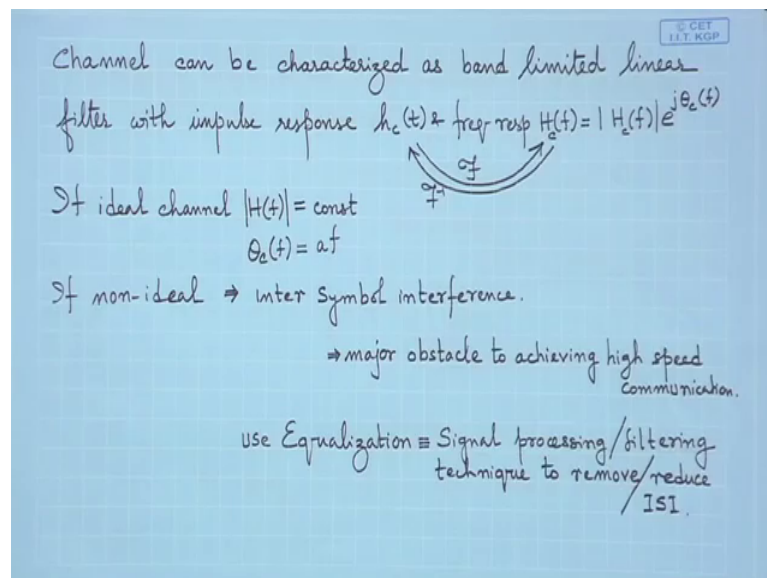 © CET
I.I.T. KGP
Channel can be characterized as band limited linear
filter with impulse response h_c(t) & freq-resp H_c(f) = |H_c(f)|e^{jθ_c(f)}
F
F⁻¹
If ideal channel |H(f)| = const
θ_c(f) = af
If non-ideal ⇒ inter symbol interference.
⇒ major obstacle to achieving high speed
communication.
use Equalization ≡ Signal processing/filtering
technique to remove/reduce
ISI.